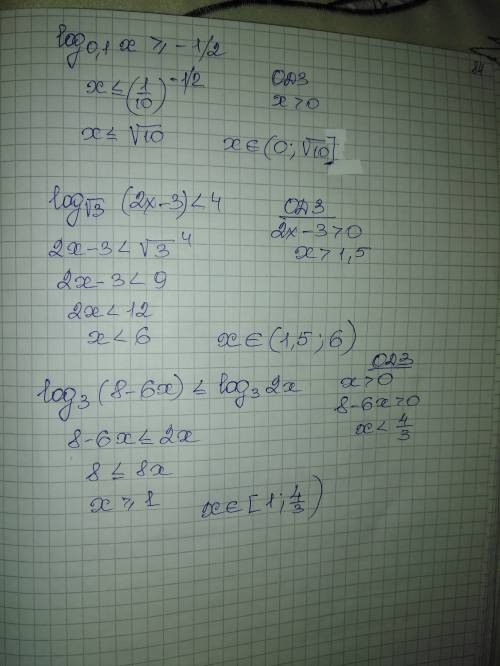 log₀,₁ x ⩾ -1/2
x ≤ (1/10)^-1/2
ОДЗ
x > 0
x ≤ √10
x ∈ (0; √10]
log√3 (2x-3) < 4
ОДЗ
2x-3 > 0
x > 1,5
2x-3 < √3⁴
2x-3 < 9
2x < 12
x < 6
x ∈ (1,5; 6)
log₃ (8-6x) ≤ log₃ 2x
ОДЗ
x > 0
8-6x > 0
x < 4/3
8-6x ≤ 2x
8 ≤ 8x
x ⩾ 1
x ∈ [1; 4/3)